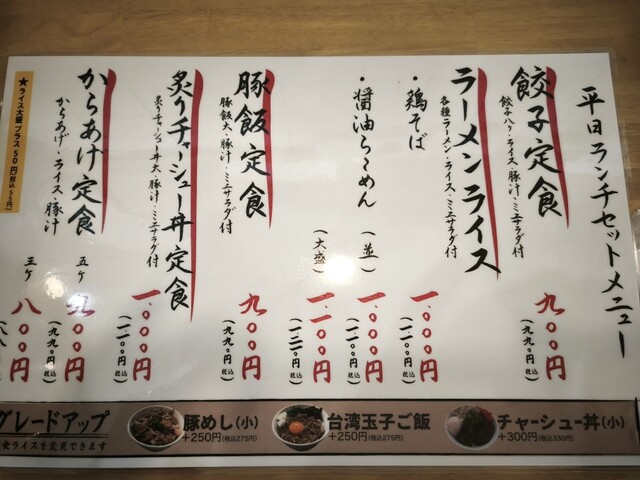 平日ランチセットメニュー
餃子定食
餃子八ケ・ライス・豚汁・ミニサラダ付
九〇〇円
(九九〇円税込)
ラーメンライス
各種ラーメン・ライス・ミニサラダ付
・鶏そば
一、〇〇〇円
(一、一〇〇円税込)
・醤油らーめん
(並)
一、〇〇〇円
(一、一〇〇円税込)
(大盛)
一、一〇〇円
(一、二一〇円税込)
豚飯定食
豚飯大・豚汁・ミニサラダ付
九〇〇円
(九九〇円税込)
炙りチャーシュー丼定食
炙りチャーシュー丼大・豚汁・ミニサラダ付
一、〇〇〇円
(一、一〇〇円税込)
からあげ定食
からあげ・ライス・豚汁
五ケ
九〇〇円
(九九〇円税込)
三ケ
八〇〇円
★ライス大盛プラス50円(税込55円)
グレードアップ
食ライスを変更できます
豚めし(小)
+250円(税込275円)
台湾玉子ご飯
+250円(税込275円)
チャーシュー丼(小)
+300円(税込330円)